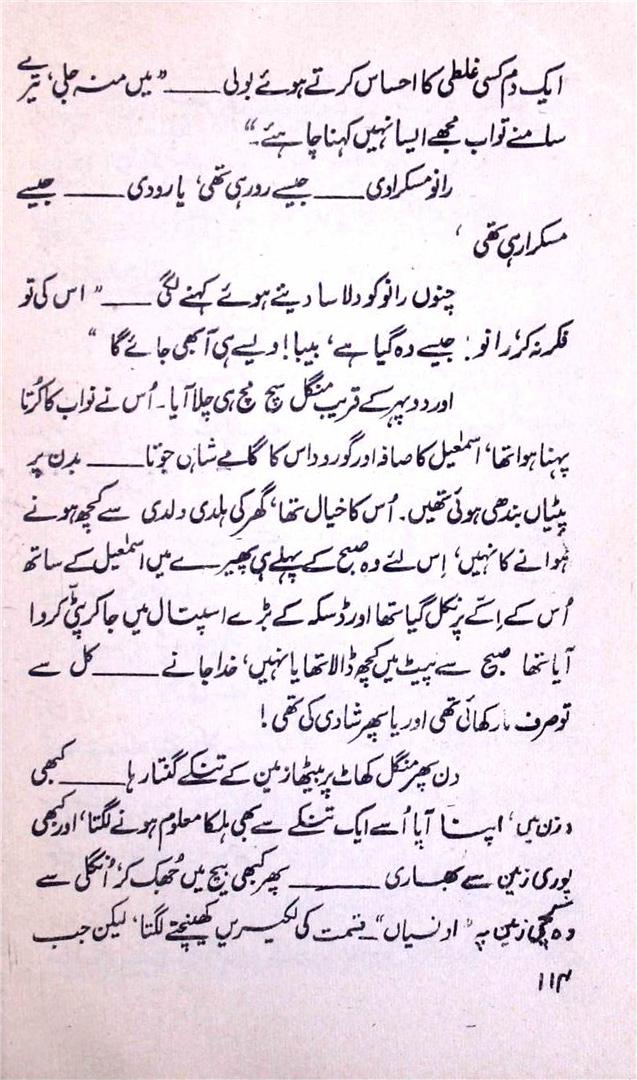 ایک دم کسی غلطی کا احساس کرتے ہوئے بولی ــــــ ”میں منہ جلی، تیرے
سامنے تو اب مجھے ایسا نہیں کہنا چاہئے۔“
رانو مسکرا دی ــــــ جیسے رو رہی تھی، یا رو دی ــــــ جیسے
مسکرا رہی تھی ،
چنوں رانو کو دلاسا دیتے ہوئے کہنے لگی ــــــ ” اس کی تو
فکر نہ کر، رانو! جیسے وہ گیا ہے، بیبا! ویسے ہی آ بھی جائے گا “
اور دوپہر کے قریب منگل سچ مچ ہی چلا آیا۔ اُس نے نواب کا کُرتا
پہنا ہوا تھا، اسمٰعیل کا صافہ اور گورو داس کا گامے شاہی جوتا ــــــ بدن پر
پٹیاں بندھی ہوئی تھیں۔ اُس کا خیال تھا، گھر کی ہلدی ولدی سے کچھ ہونے
ہوانے کا نہیں، اِس لئے وہ صبح کے پہلے ہی پھیرے میں اسمٰعیل کے ساتھ
اُس کے اِکّے پر نکل گیا تھا اور ڈسکہ کے بڑے اسپتال میں جا کر پٹّی کروا
آیا تھا صبح سے پیٹ میں کچھ ڈالا تھا یا نہیں، خدا جانے ــــــ کل سے
تو صرف مار کھائی تھی اور یا پھر شادی کی تھی!
دن پھر منگل کھاٹ پر بیٹھا زمین کے تنکے گنتا رہا ــــــ کبھی
وزن میں، اپنا آپا اُسے ایک تنکے سے بھی ہلکا معلوم ہونے لگتا، اور کبھی
پوری زمین سے بھاری ــــــ پھر کبھی بیچ میں جُھک کر، اُنگلی سے
وہ کچی زمین پہ ”اونسیاں“ ــ قسمت کی لکیریں کھینچنے لگتا، لیکن جب
۱۱۴